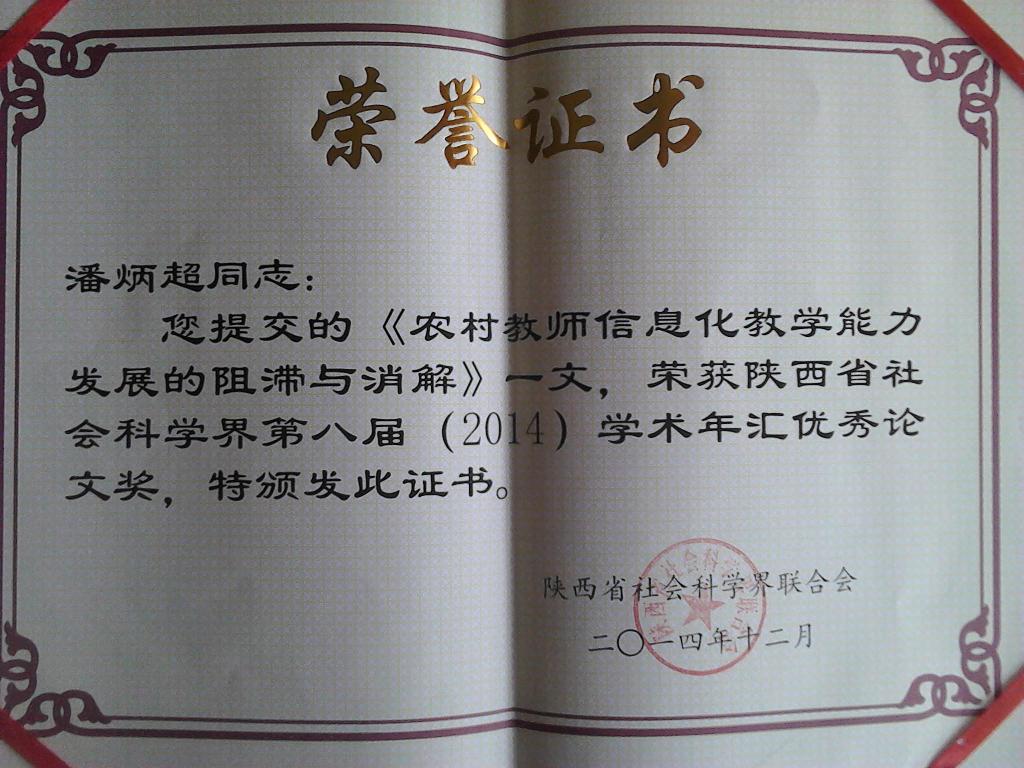 荣誉证书
潘炳超同志：
您提交的《农村教师信息化教学能力
发展的阻滞与消解》一文，荣获陕西省社
会科学界第八届（2014）学术年汇优秀论
文奖，特颁发此证书。
陕西省社会科学界联合会
二〇一四年十二月